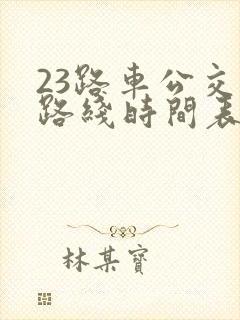 23路車公交
路綫時間表
林某寶